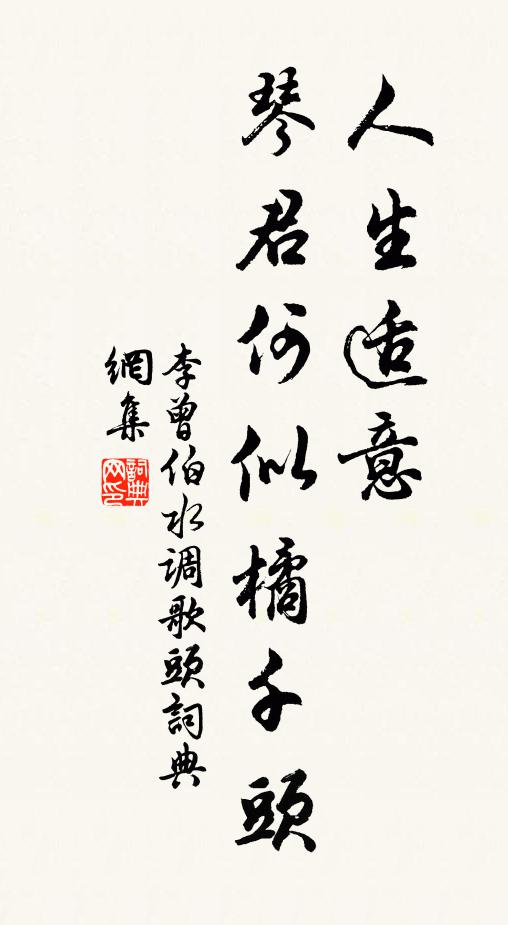 人生适意
琴君何似橘千頭
李曾伯水调歌頭詞典
網集
詞典
网印